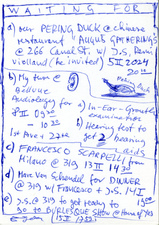 WAITING FOR
a) our PEKING DUCK @ chinese
restaurant "AUGUST GATHERING"
@ 266 Canal St. w/ D.S., Rani
Violland (he invited) 5 II 2024
20
b) My turn @
Bellevue
Audiology for
8 II
1st Ave +
a) In-Ear-
examination
b) Hearing test to
get 2 hearing
aids
c) FRANCESCO SCARPELLI from
Milano @ 319 13 II 14 30
d) Max Von Schendel for DINNER
@ 319 w/ FRANCESCO + D.S. 14 II
e) D.S. @ 319 to get ready to
go to BURLESQUE SHOW @ House of Yes
15 II